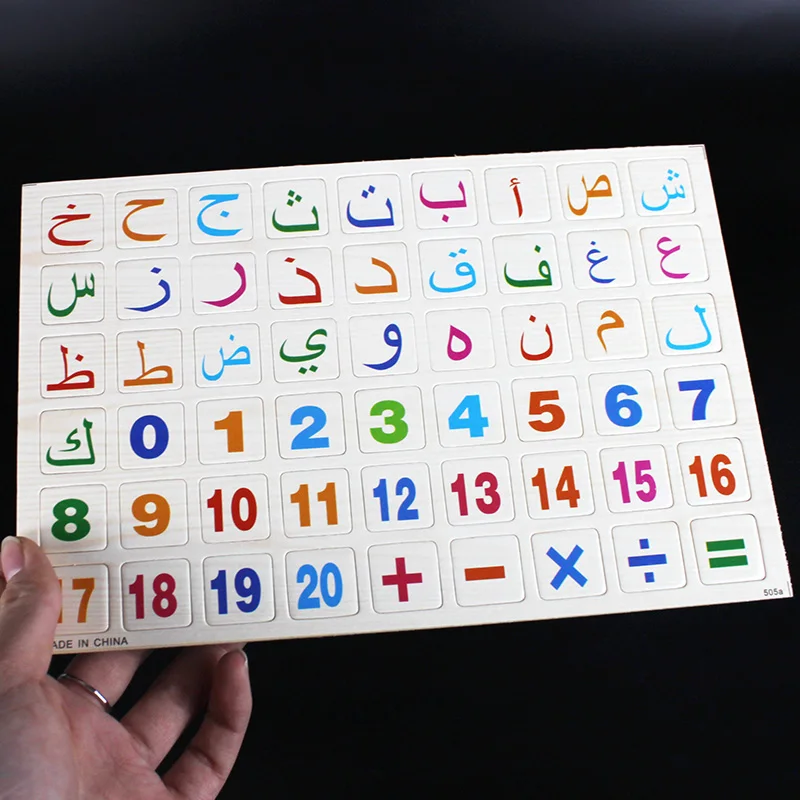 ش ص أ ب ت ث ج ح خ
ع غ ف ق د ذ ر ز س
ل م ن ه و ي ض ط ظ
ك 0 1 2 3 4 5 6 7
8 9 10 11 12 13 14 15 16
17 18 19 20 + − × ÷ =
505a
MADE IN CHINA